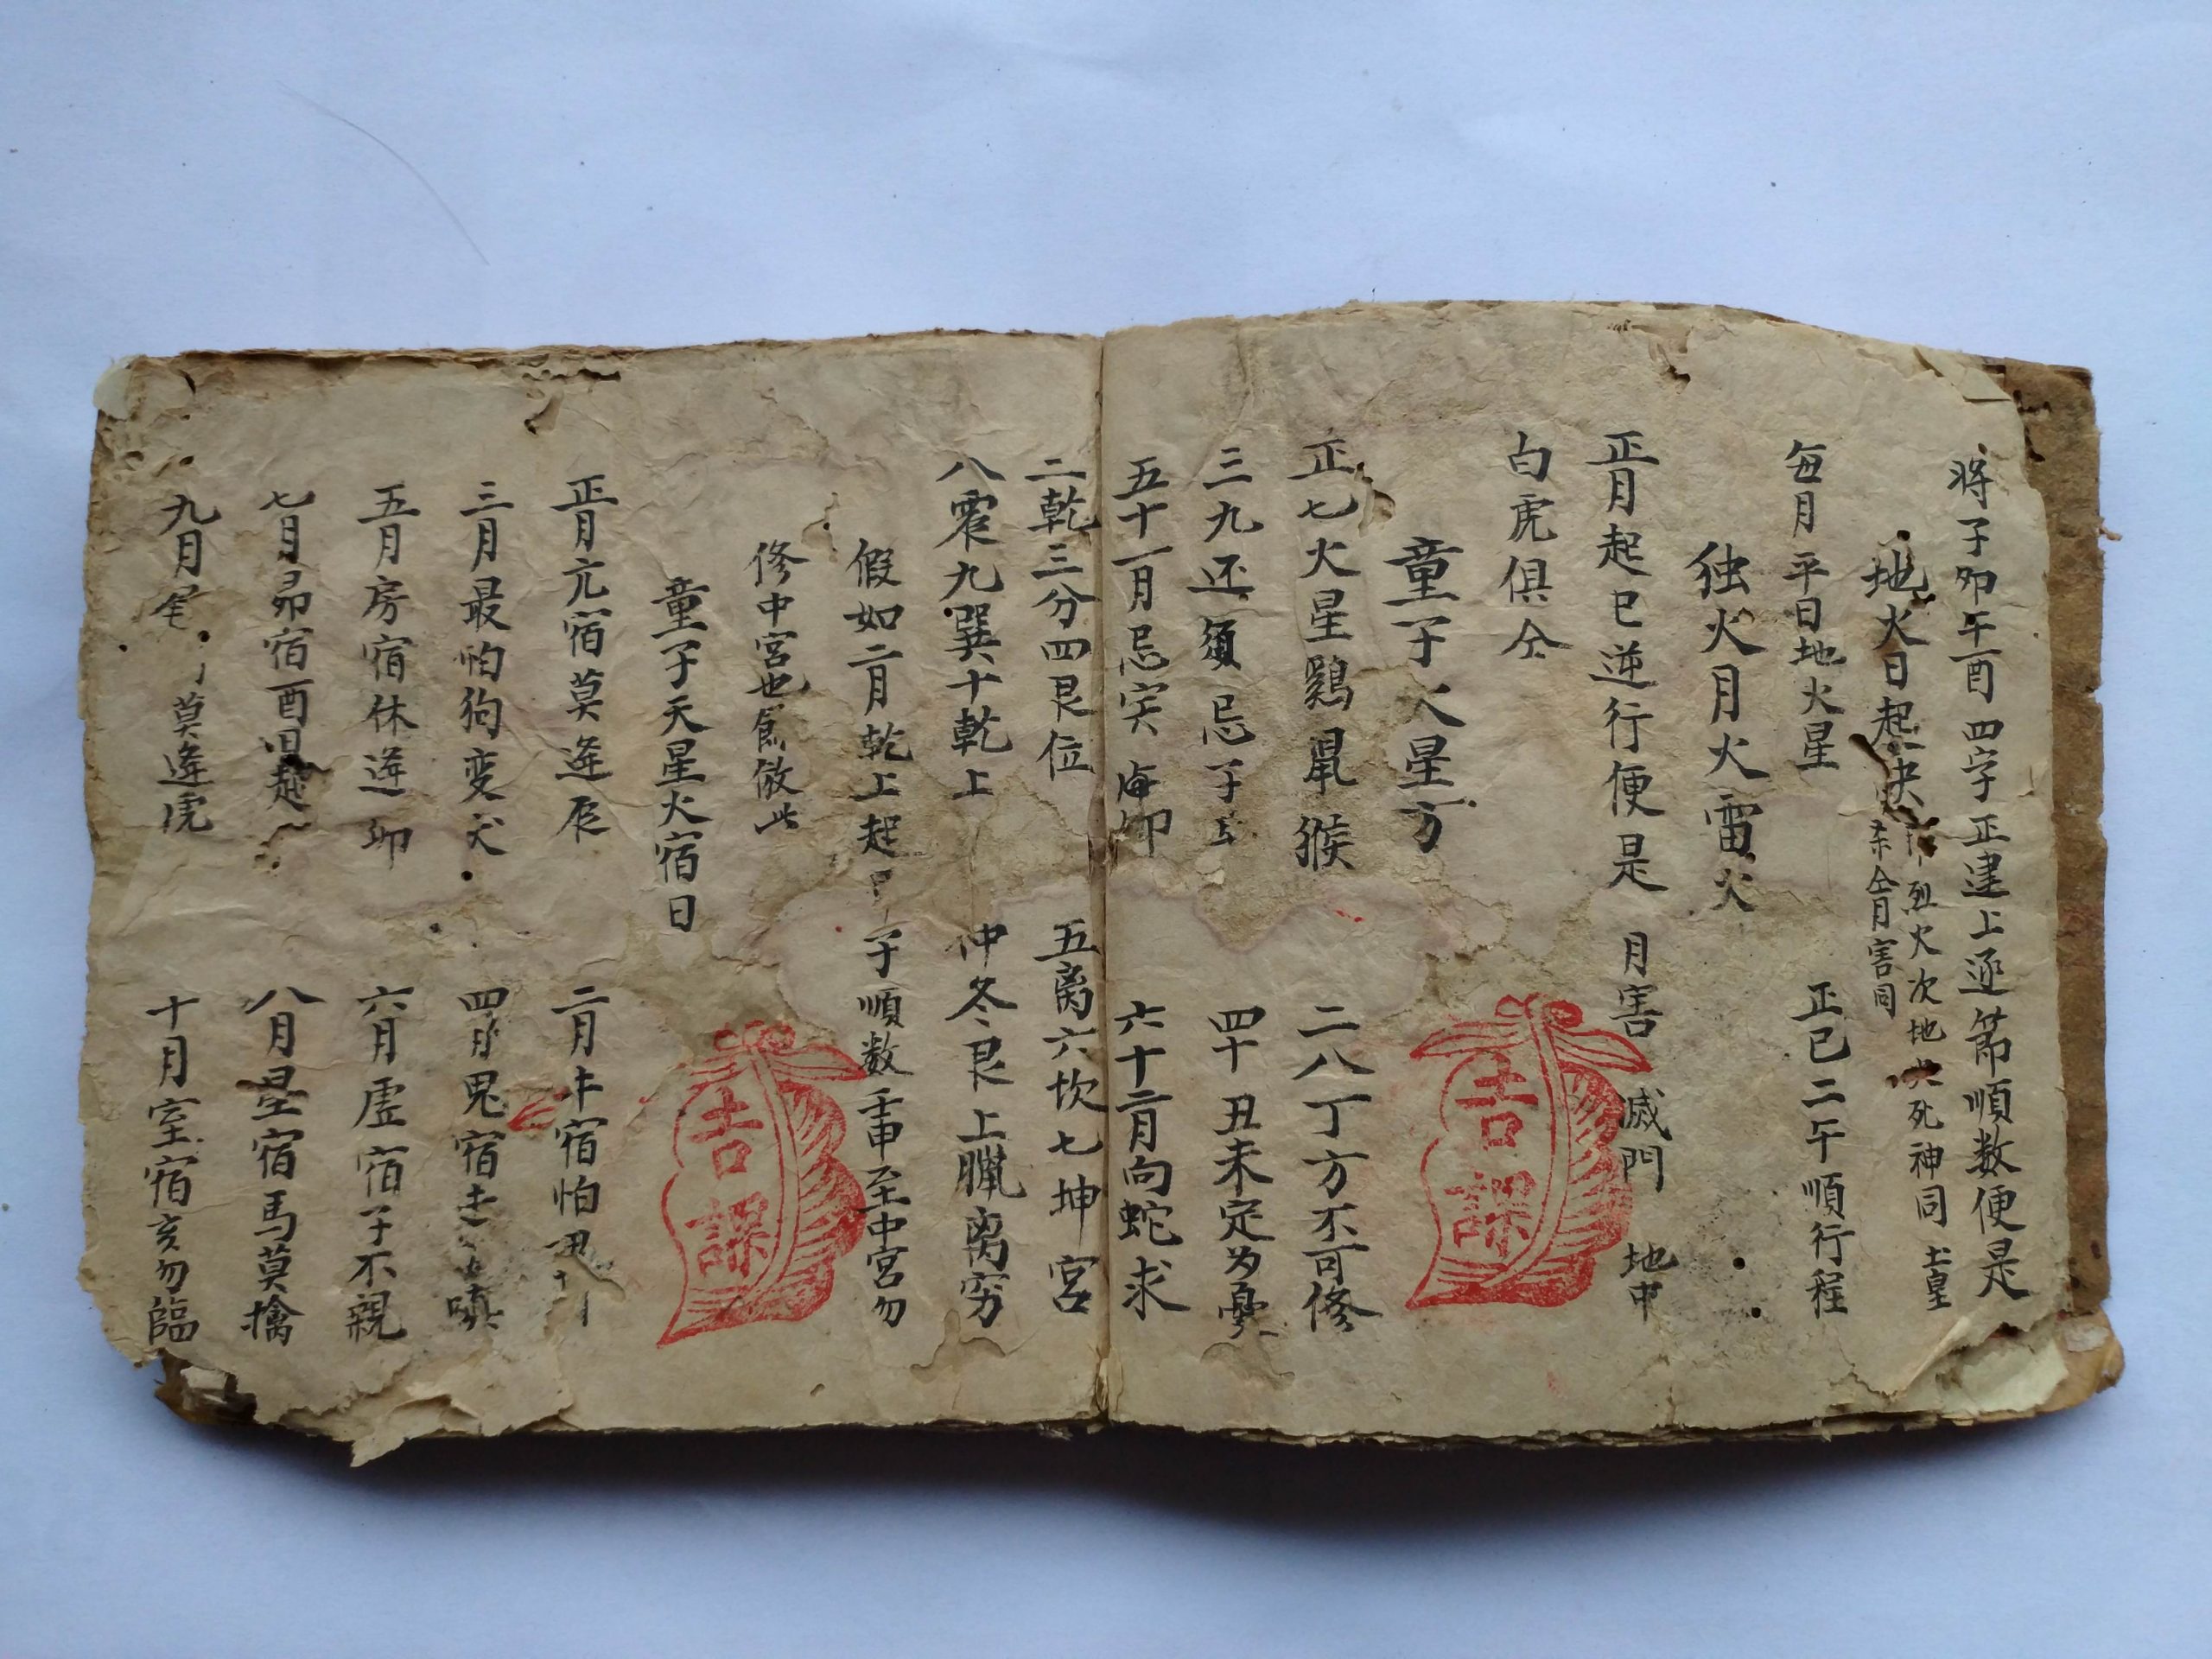 将子卯午酉四字正建上逐節順数便是
地火日起决
烈火次地火死神同 土皇
杀仝月害同
每月平日地火星 正巳二午順行程
独火月火雷火
正月起巳逆行便是 月害 滅門 地中
白虎俱仝
童子火星方
正七火星鷄鼠猴 二八丁方不可修
三九还須忌子 四十丑未定为憂
五十一月忌寅卯 六十二月向蛇求
二乾三分四艮位 五离六坎七坤宮
八震九巽十乾上 仲冬艮上臘离穷
假如二月乾上起甲子順数壬申至中宮勿
修中宮也餘倣此
童子天星火宿日
正月亢宿莫逢辰 二月牛宿怕丑
三月最怕狗变犬 四月鬼宿 嗔
五月房宿休逢卯 六月虛宿子不親
七月昴宿酉 起 八月星宿馬莫擒
九月尾 莫逢虎 十月室宿亥勿臨
吉課
吉課